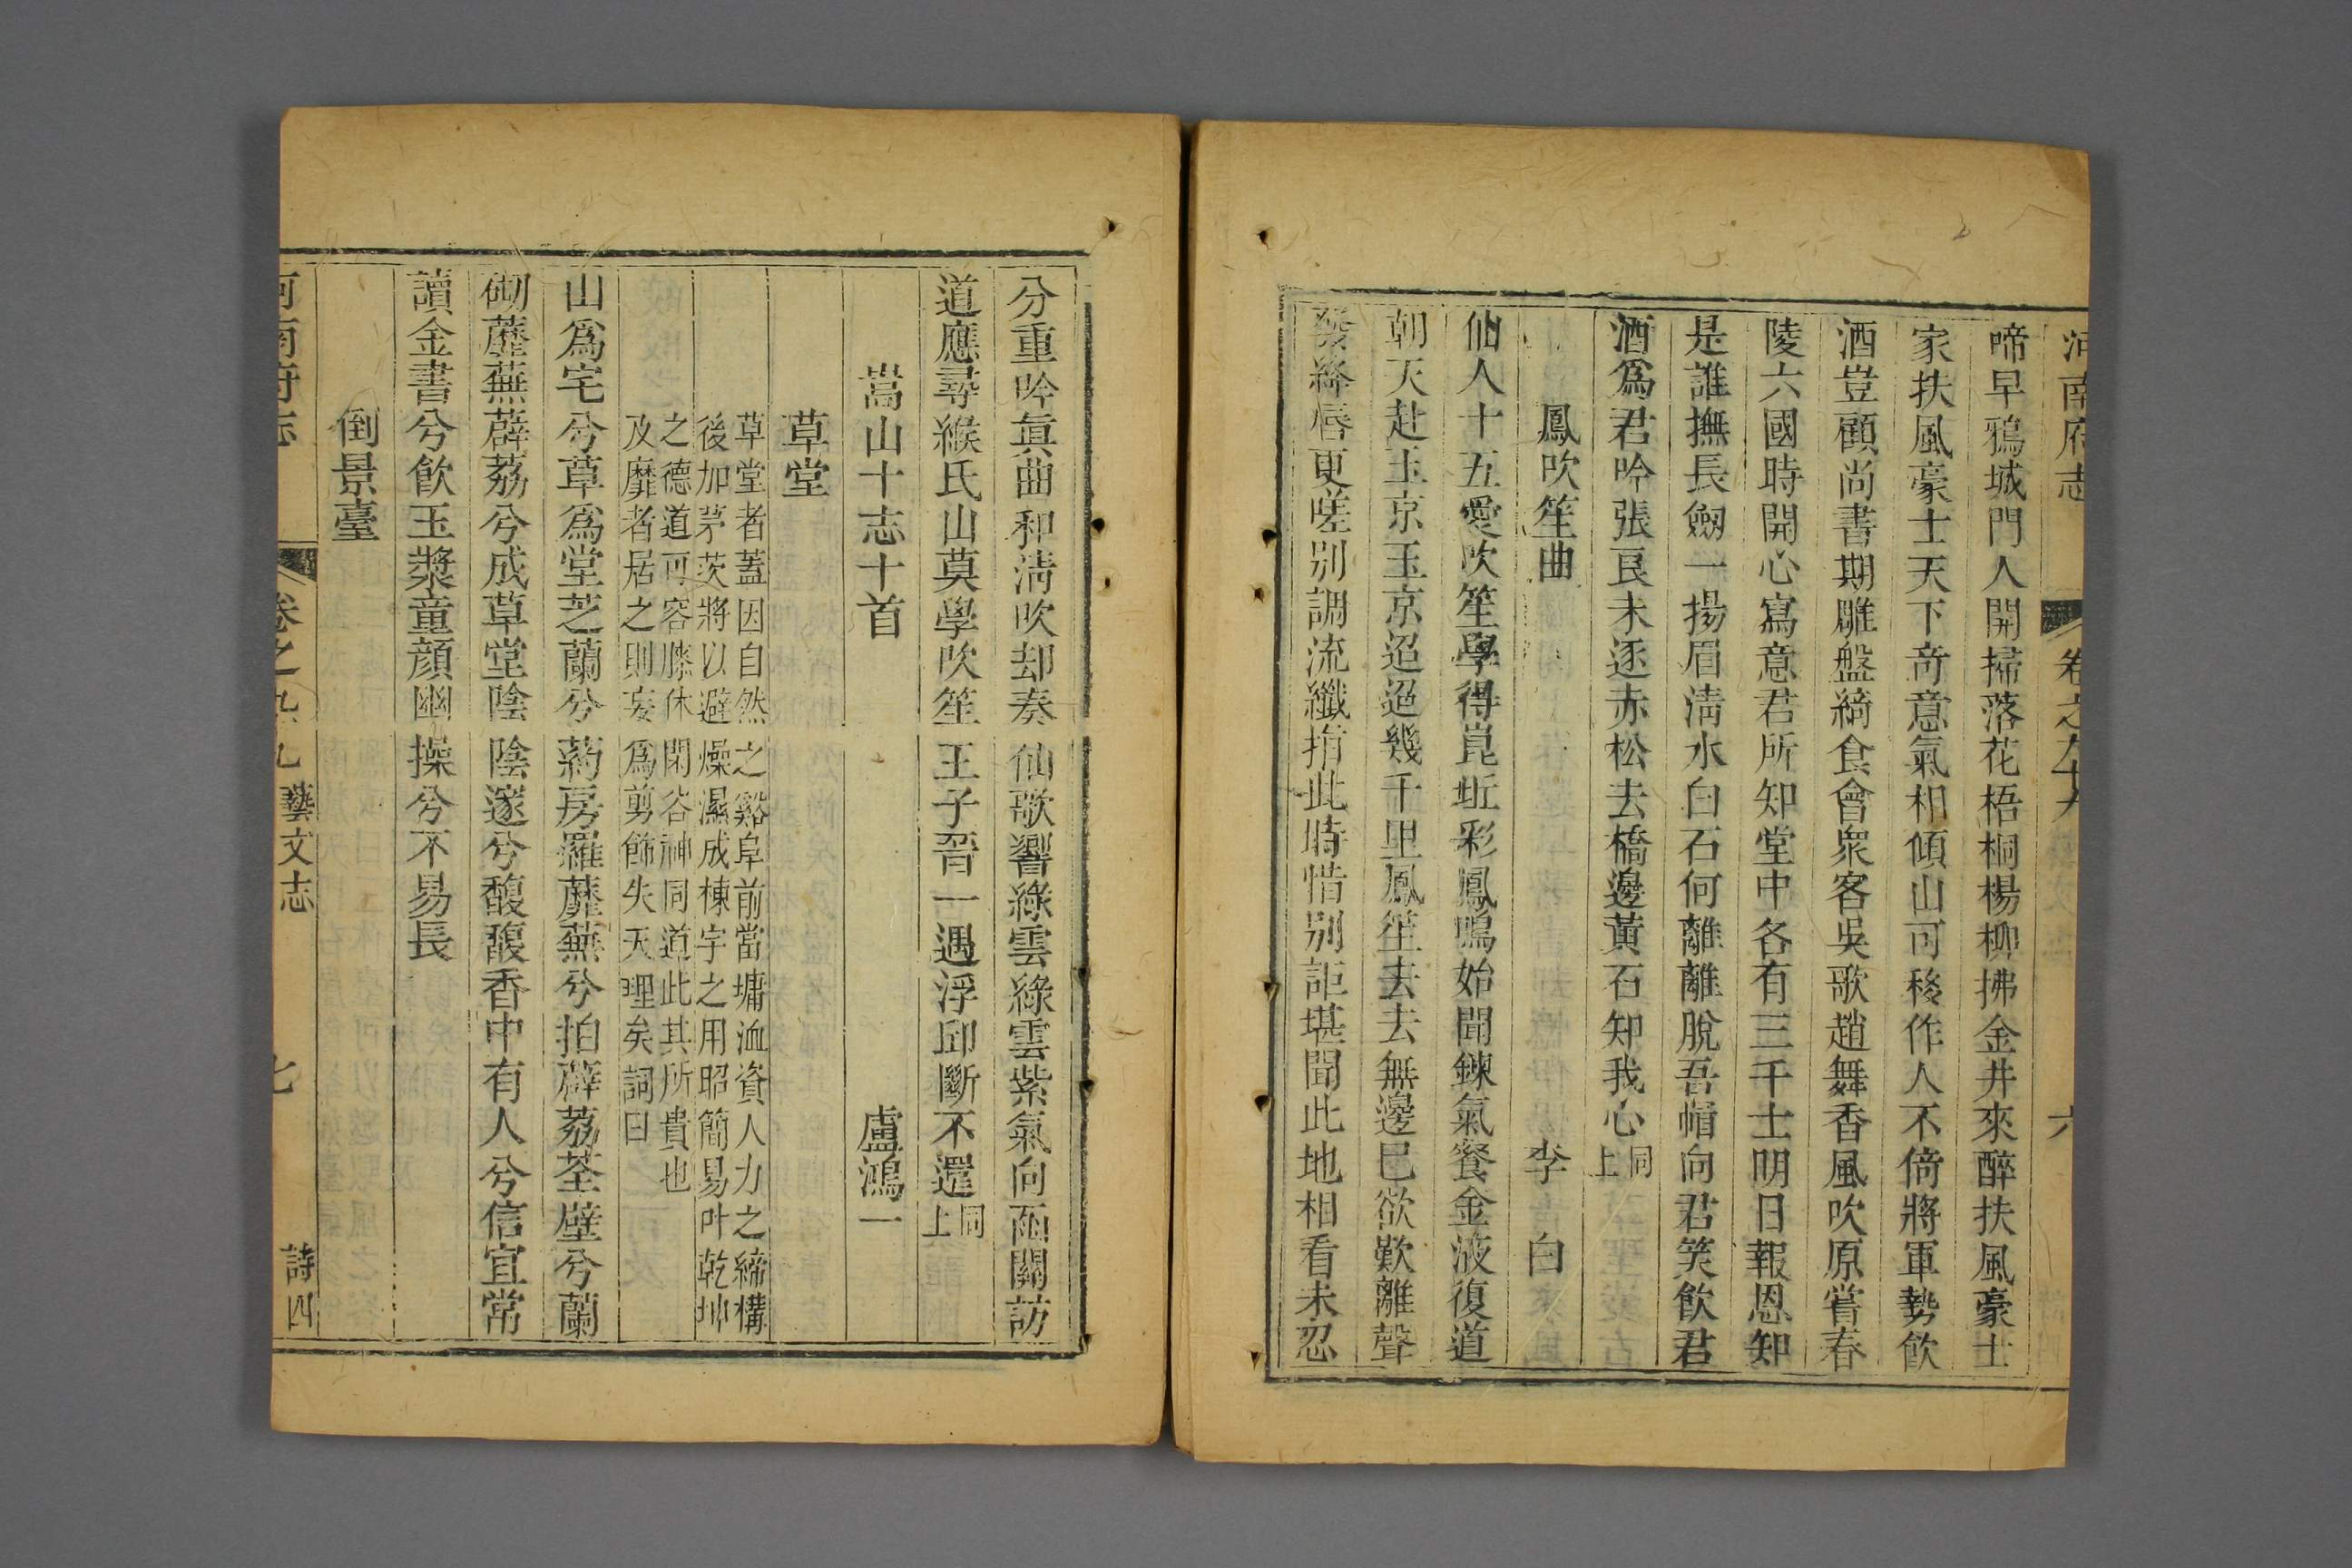 河南府志 卷之九十九 六
啼早鴉城門人開掃落花梧桐楊柳拂金井來醉扶風豪士
家扶風豪士天下奇意氣相傾山可移作人不倚將軍勢飲
酒豈顧尚書期雕盤綺食會衆客吳歌趙舞香風吹原嘗春
陵六國時開心寫意君所知堂中各有三千士明日報恩知
是誰撫長劒一揚眉淸水白石何離離脫吾帽向君笑飲君
酒爲君吟張良未逐赤松去橋邊黃石知我心同上
鳳吹笙曲 李白
仙人十五愛吹笙學得崑坵彩鳳鳴始聞鍊氣餐金液復道
朝天赴玉京玉京迢迢幾千里鳳笙去去無邊已欲歎離聲
發絳唇更嗟別調流纖指此時惜別詎堪聞此地相看未忍
分重吟眞曲和淸吹却奏仙歌響綠雲綠雲紫氣向函關訪
道應尋緱氏山莫學吹笙王子晉一遇浮邱斷不還同上
嵩山十志十首 盧鴻一
草堂
草堂者蓋因自然之谿阜前當墉洫資人力之締構
後加茅茨將以避燥濕成棟宇之用昭簡易叶乾坤
之德道可容膝休閑谷神同道此其所貴也
及靡者居之則妄爲剪飾失天理矣詞曰
山爲宅兮草爲堂芝蘭兮葯房羅蘼蕪兮拍薜荔荃壁兮蘭
砌蘼蕪薜荔兮成草堂陰陰邃兮馥馥香中有人兮信宜常
讀金書兮飮玉漿童顔幽操兮不易長
倒景臺
河南府志 卷之九十九 藝文志 七 詩四